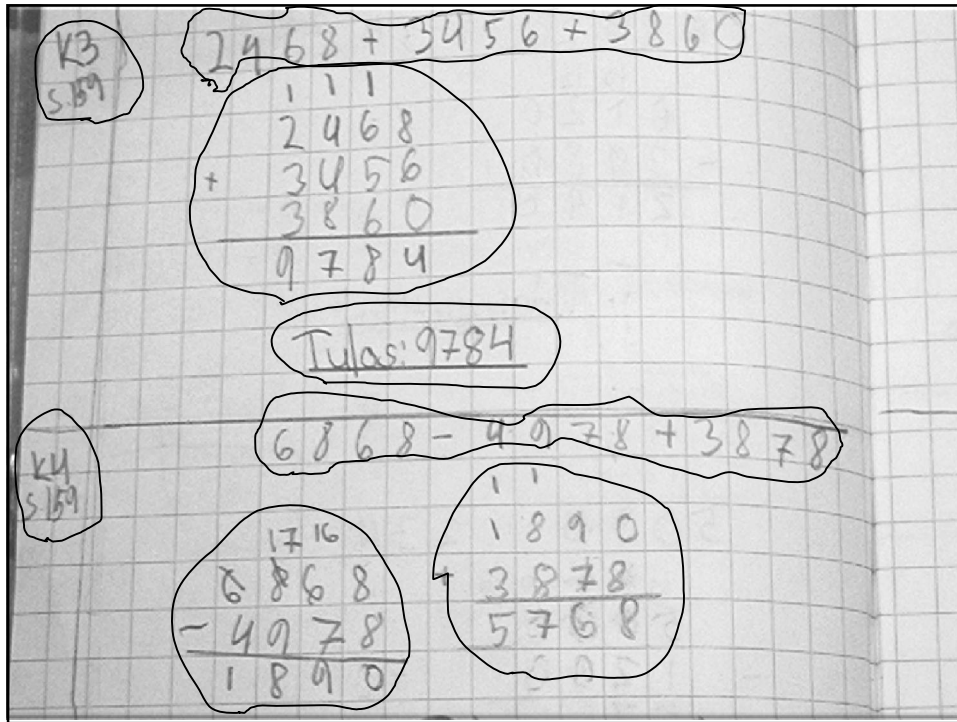 K3
s.159
2468 + 3456 + 3860
1 1 1
2468
+ 3456
3860
9784
Tulas: 9784
K4
s.159
6868 - 4978 + 3878
17 16
6868
- 4978
1890
1 1
1890
+ 3878
5768